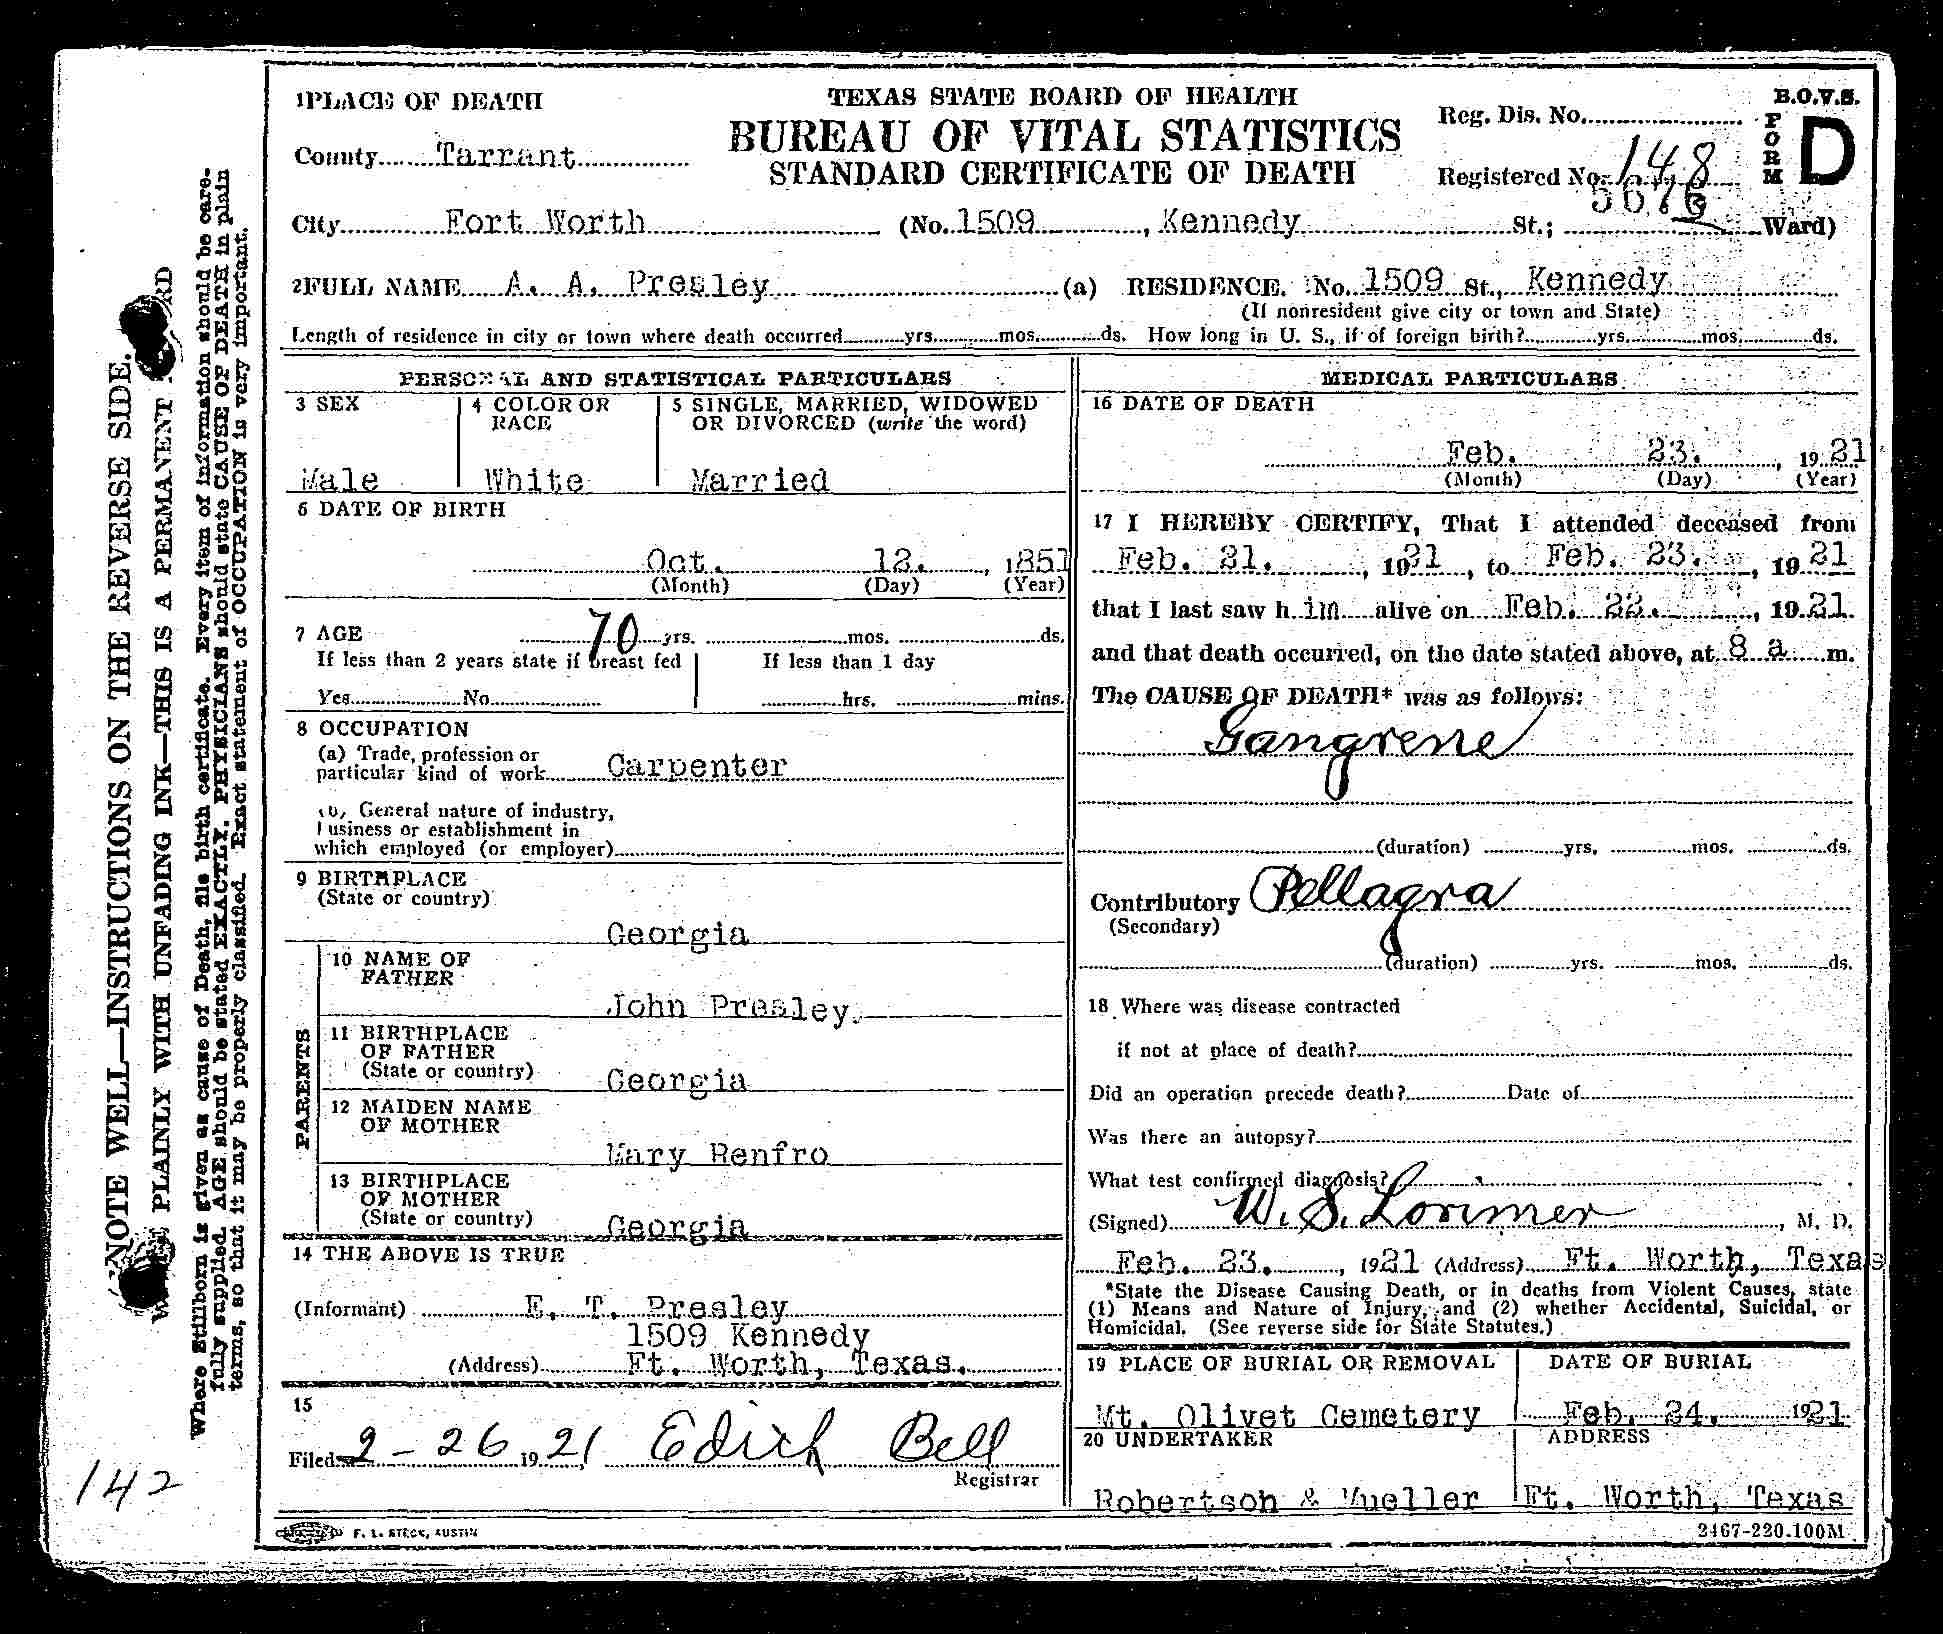 1 PLACE OF DEATH
TEXAS STATE BOARD OF HEALTH
B.O.V.S.
BUREAU OF VITAL STATISTICS
STANDARD CERTIFICATE OF DEATH
Reg. Dis. No.
FORM D
County Tarrant
Registered No. 148
5673
City Fort Worth (No. 1509, Kennedy St.; Ward)
2 FULL NAME A. A. Presley (a) RESIDENCE. No. 1509 St., Kennedy
(If nonresident give city or town and State)
Length of residence in city or town where death occurred yrs. mos. ds. How long in U. S., if of foreign birth? yrs. mos. ds.
PERSONAL AND STATISTICAL PARTICULARS
3 SEX
Male
4 COLOR OR RACE
White
5 SINGLE, MARRIED, WIDOWED
OR DIVORCED (write the word)
Married
6 DATE OF BIRTH
Oct. 12. , 1851
(Month) (Day) (Year)
7 AGE 70 yrs. mos. ds.
If less than 2 years state if breast fed
Yes No
If less than 1 day
hrs. mins.
8 OCCUPATION
(a) Trade, profession or
particular kind of work Carpenter
(b) General nature of industry,
business or establishment in
which employed (or employer)
9 BIRTHPLACE
(State or country)
Georgia
PARENTS
10 NAME OF
FATHER
John Presley.
11 BIRTHPLACE
OF FATHER
(State or country) Georgia
12 MAIDEN NAME
OF MOTHER
Mary Renfro
13 BIRTHPLACE
OF MOTHER
(State or country) Georgia
14 THE ABOVE IS TRUE
(Informant) E. T. Presley
1509 Kennedy
(Address) Ft. Worth, Texas.
15
Filed 2-26 1921 Edith Bell
Registrar
MEDICAL PARTICULARS
16 DATE OF DEATH
Feb. 23. , 1921
(Month) (Day) (Year)
17 I HEREBY CERTIFY, That I attended deceased from
Feb. 21. , 1921, to Feb. 23. , 1921
that I last saw him alive on Feb. 22. , 1921.
and that death occurred, on the date stated above, at 8 a m.
The CAUSE OF DEATH* was as follows:
Gangrene
(duration) yrs. mos. ds.
Contributory Pellagra
(Secondary)
(duration) yrs. mos. ds.
18 Where was disease contracted
if not at place of death?
Did an operation precede death? Date of
Was there an autopsy?
What test confirmed diagnosis?
(Signed) W. S. Lorimer, M. D.
Feb. 23. , 1921 (Address) Ft. Worth, Texas
*State the Disease Causing Death, or in deaths from Violent Causes, state
(1) Means and Nature of Injury, and (2) whether Accidental, Suicidal, or
Homicidal. (See reverse side for State Statutes.)
19 PLACE OF BURIAL OR REMOVAL
Mt. Olivet Cemetery
DATE OF BURIAL
Feb. 24. 1921
20 UNDERTAKER
Robertson & Mueller
ADDRESS
Ft. Worth, Texas
F. L. STECK, AUSTIN
2467-220.100M
NOTE WELL—INSTRUCTIONS ON THE REVERSE SIDE.
PLAINLY WITH UNFADING INK—THIS IS A PERMANENT
Where Stillborn is given as cause of Death, file birth certificate. Every item of information should be care-
fully supplied. AGE should be stated EXACTLY. PHYSICIANS should state CAUSE OF DEATH in plain
terms, so that it may be properly classified. Exact statement of OCCUPATION is very important.
142